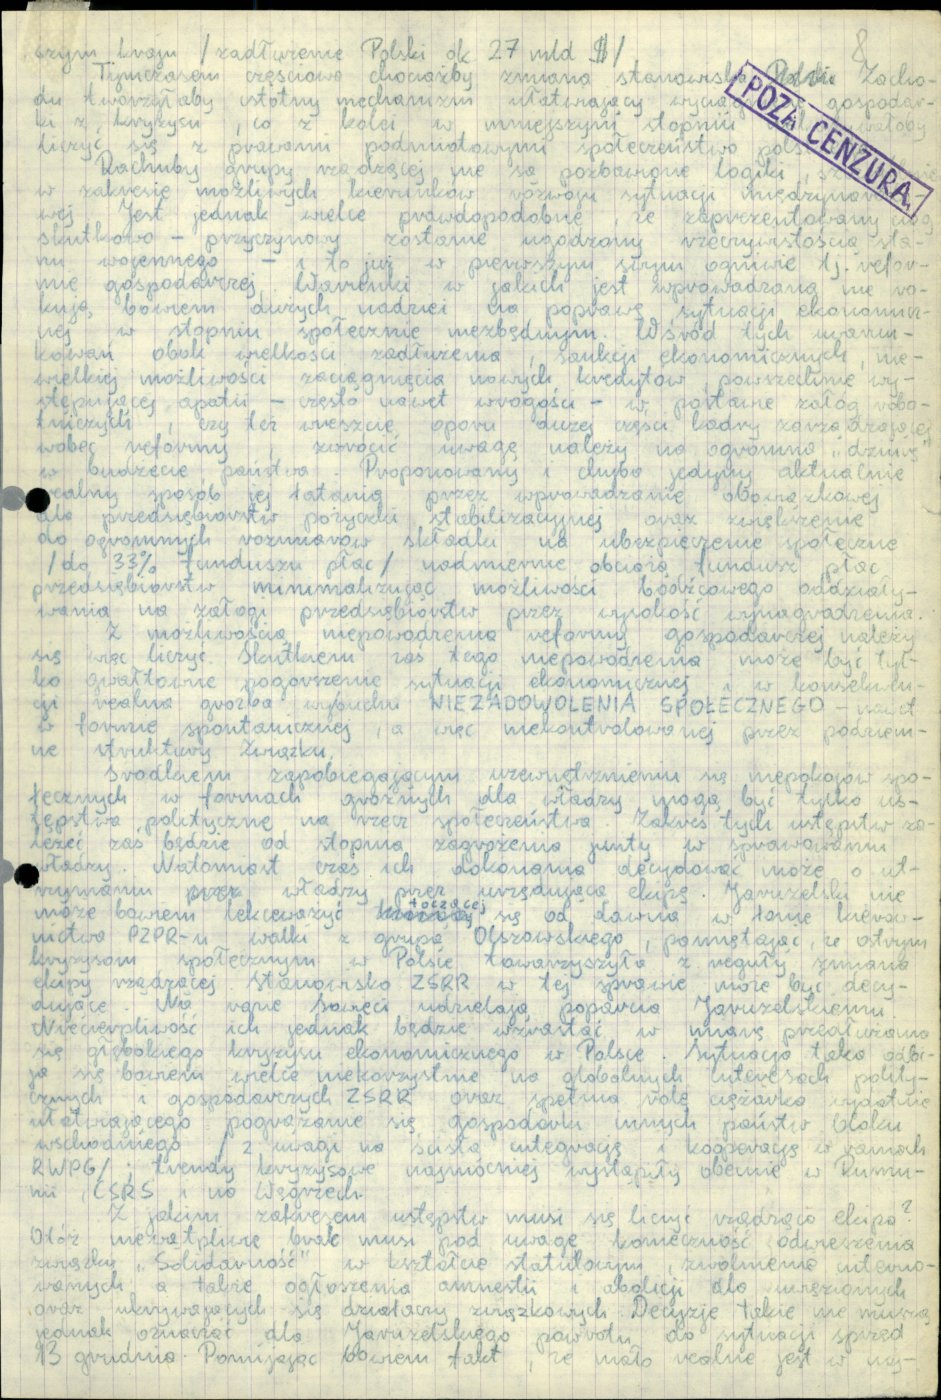 szym kraju /zadłużenie Polski ok 27 mld $/
8
Tymczasem częściowa chociażby zmiana stanowiska Zacho-
du tworzyłaby istotny mechanizm ułatwiający gospodar-
ki z kryzysu, co z kolei w mniejszym stopniu
liczyć się z prawami podmiotowymi społeczeństwa
POZA CENZURĄ
Rachuby grupy rządzącej nie są pozbawione logiki,
w zakresie możliwych kierunków rozwoju sytuacji
wej. Jest jednak wielce prawdopodobne, że zaprezentowany ciąg
skutkowo - przyczynowy zostanie ugodzony rzeczywistością sta-
nu wojennego - i to już w pierwszym swym ogniwie tj. refor-
mie gospodarczej. Warunki w jakich jest wprowadzana nie ro-
kują bowiem dużych nadziei na poprawę sytuacji ekonomicz-
nej w stopniu społecznie niezbędnym. Wśród tych uwarun-
kowań obok wielkości zadłużenia, sankcji ekonomicznych, nie-
wielkiej możliwości zaciągnięcia nowych kredytów, powszechnie wy-
stępującej apatii - często nawet wrogości - w postawie załóg robo-
tniczych, czy też wreszcie oporu dużej części kadry zarządzającej
wobec reformy, zwrócić uwagę należy na ogromną "dziurę"
w budżecie państwa. Proponowany i chyba jedyny aktualnie
realny sposób jej łatania przez wprowadzanie obowiązkowej
dla przedsiębiorstw pożyczki stabilizacyjnej oraz zwiększenie
do ogromnych rozmiarów składki na ubezpieczenie społeczne
/do 33% funduszu płac/ nadmiernie obciąża fundusz płac
przedsiębiorstw minimalizując możliwości bodźcowego oddziały-
wania na załogi przedsiębiorstw przez wysokość wynagrodzenia.
Z możliwością niepowodzenia reformy gospodarczej należy
się więc liczyć. Skutkiem zaś tego niepowodzenia może być tyl-
ko gwałtowne pogorszenie sytuacji ekonomicznej i w konsekwen-
cji realna groźba wybuchu NIEZADOWOLENIA SPOŁECZNEGO - nawet
w formie spontanicznej, a więc niekontrolowanej przez podziem-
ne struktury Związku.
Środkiem zapobiegającym uzewnętrznieniu się niepokojów spo-
łecznych w formach groźnych dla władzy mogą być tylko us-
tępstwa polityczne na rzecz społeczeństwa. Zakres tych ustępstw za-
leżeć zaś będzie od stopnia zagrożenia junty w sprawowaniu
władzy. Natomiast czas ich dokonania decydować może o ut-
rzymaniu władzy przez urzędującą ekipę. Jaruzelski nie
może bowiem lekceważyć toczącej się od dawna w łonie kierow-
nictwa PZPR-u walki z grupą Olszowskiego, pamiętając, że ostrym
kryzysom społecznym w Polsce towarzyszyła z reguły zmiana
ekipy rządzącej. Stanowisko ZSRR w tej sprawie może być decy-
dujące. Na razie Sowieci udzielają poparcia Jaruzelskiemu.
Niecierpliwość ich jednak będzie wzrastać w miarę przedłużania
się głębokiego kryzysu ekonomicznego w Polsce. Sytuacja taka odbi-
ja się bowiem wielce niekorzystnie na globalnych interesach polity-
cznych i gospodarczych ZSRR oraz spełnia rolę ciężarka wydatnie
ułatwiającego pogrążanie się gospodarki innych państw bloku
wschodniego /z uwagi na ścisłą integrację i kooperację w ramach
RWPG/; trendy kryzysowe najmocniej wystąpiły obecnie w Rumu-
nii, CSRS i na Węgrzech.
Z jakim zakresem ustępstw musi się liczyć rządząca ekipa?
Otóż niewątpliwie brać musi pod uwagę konieczność odwieszenia
związku "Solidarność" w kształcie statutowym, zwolnienie interno-
wanych a także ogłoszenia amnestii i abolicji dla uwięzionych
oraz ukrywających się działaczy związkowych. Decyzje takie nie muszą
jednak oznaczać dla Jaruzelskiego powrotu do sytuacji sprzed
13 grudnia. Pomijając bowiem fakt, że mało realne jest w wy-